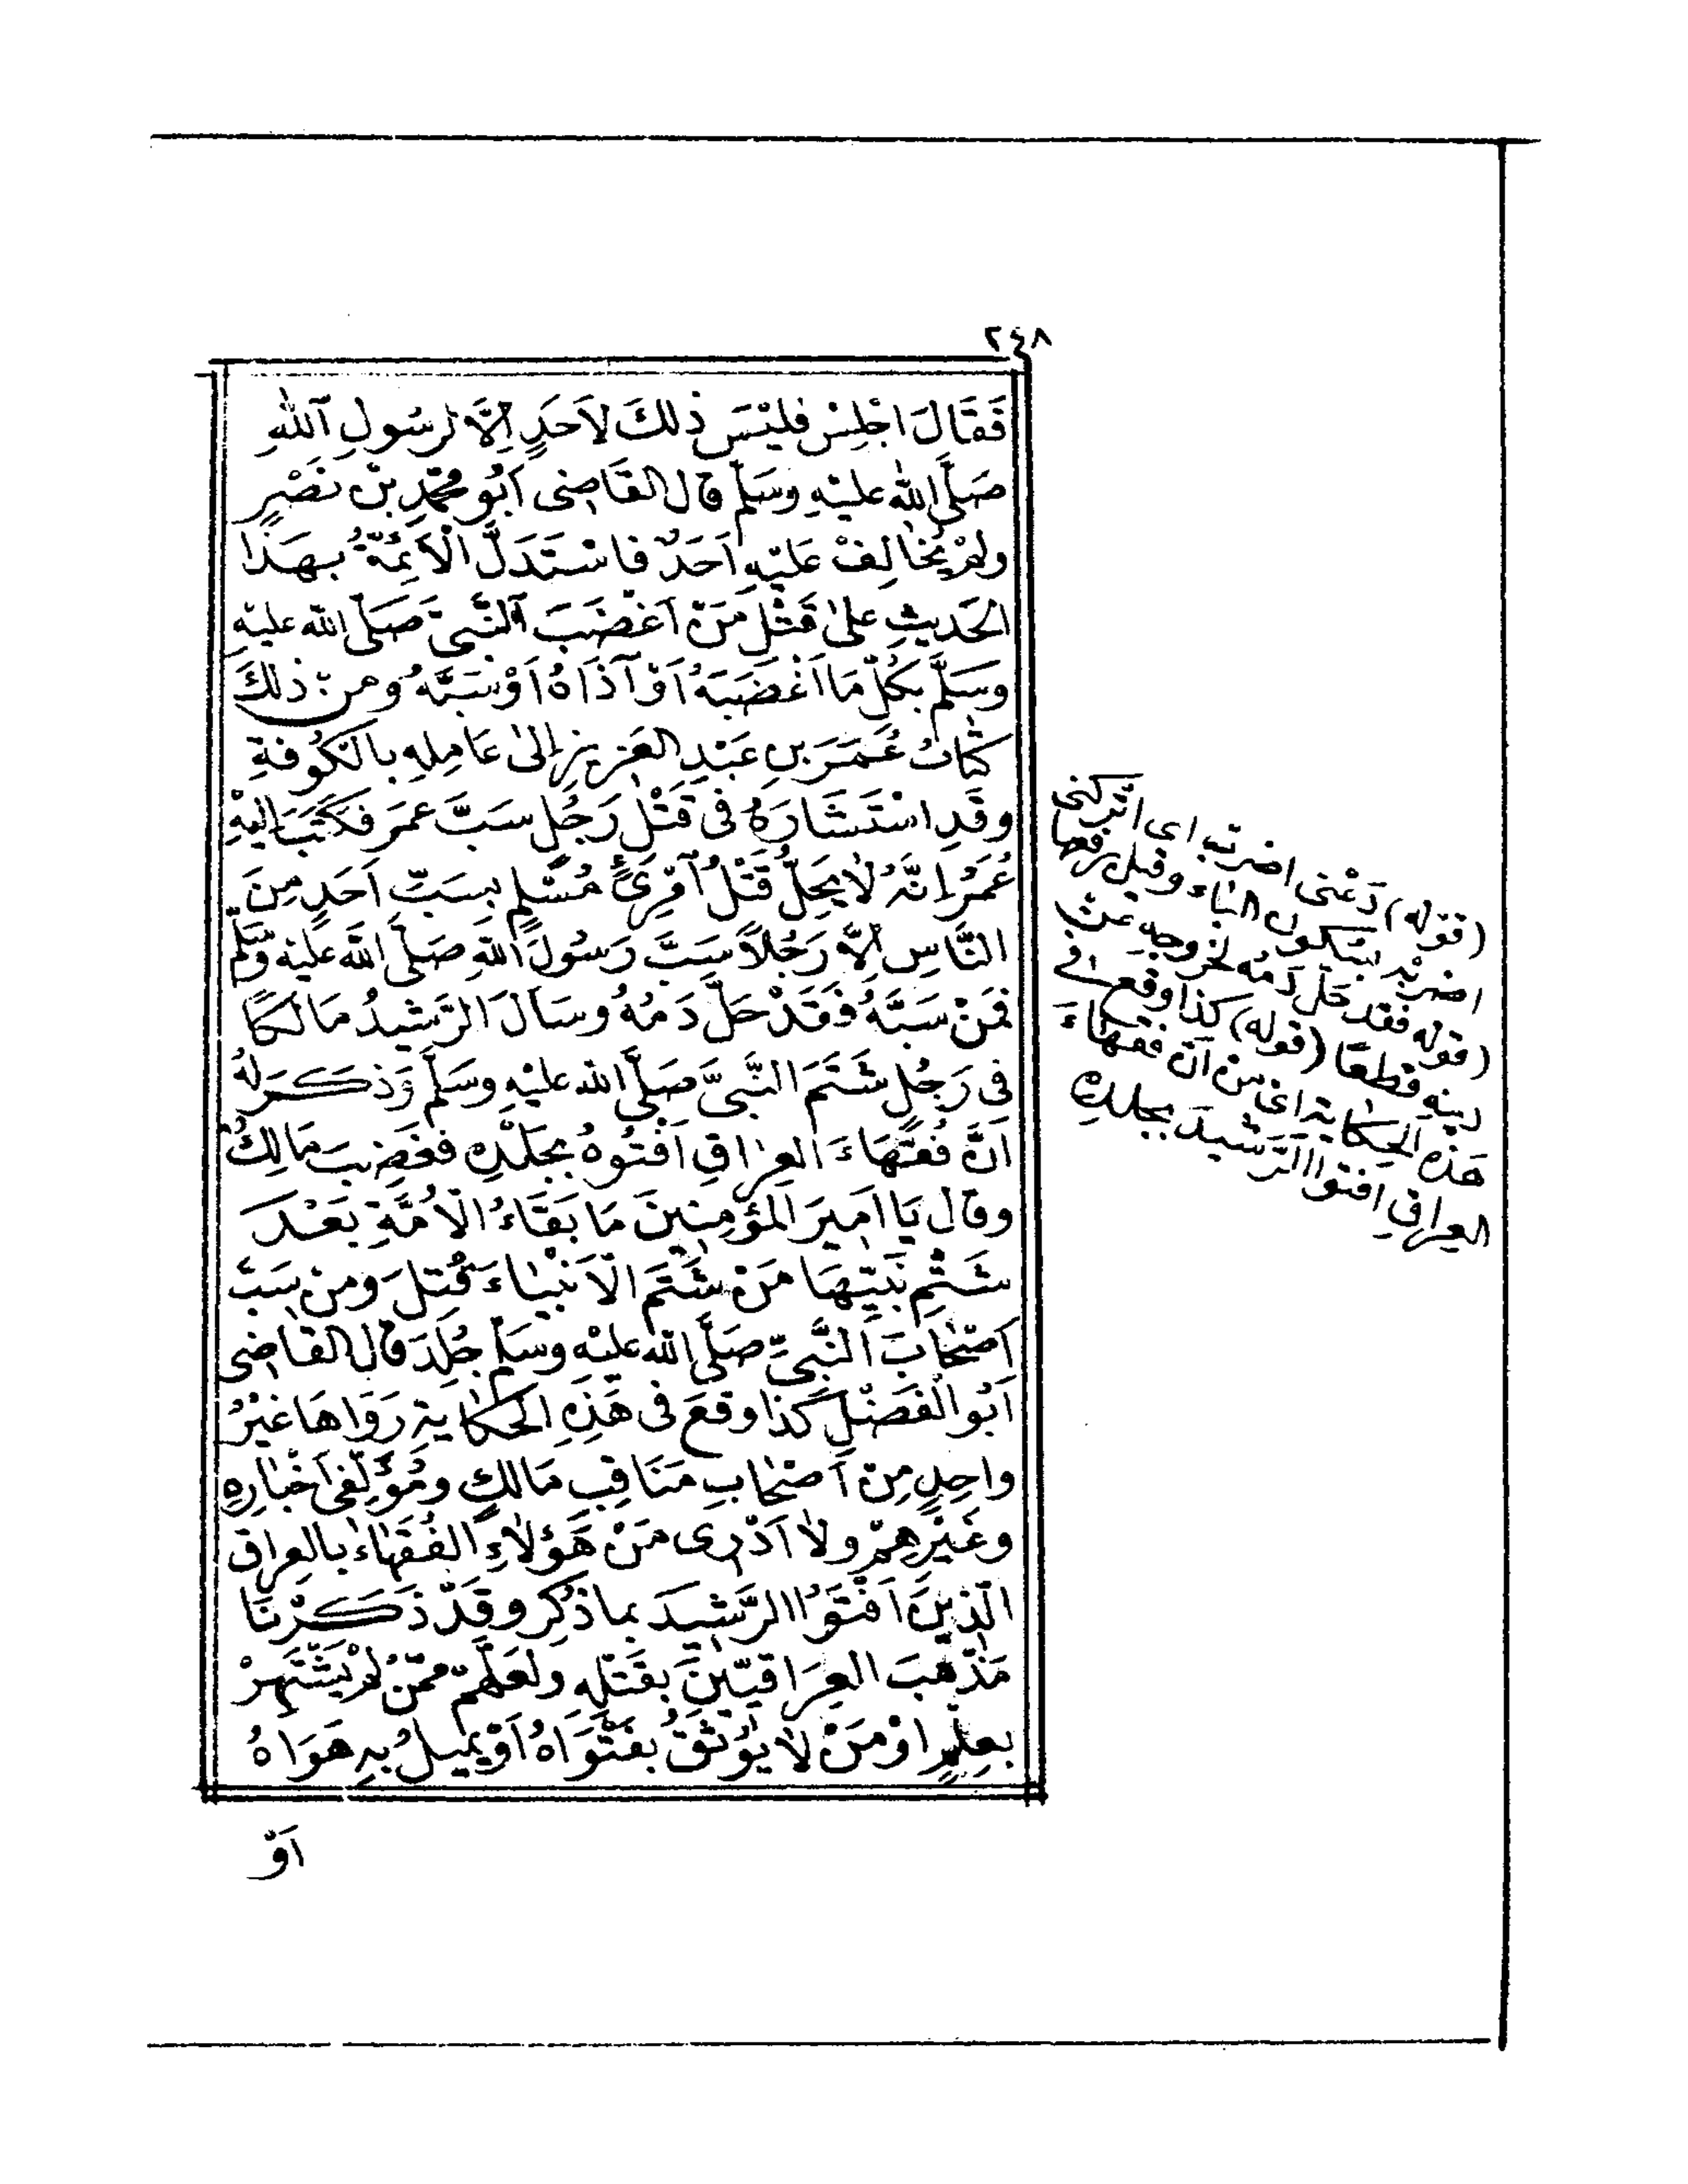 ٢٤٨
فَقَالَ اجْلِسْ فَلَيْسَ ذٰلِكَ لِاَحَدٍ اِلَّا لِرَسُولِ اللّٰهِ
صَلَّى اللّٰه عليْهِ وسَلَّم قال القَاضِى اَبُو محمَّدِ بْنُ نَصْرٍ
ولمْ يُخَالِفْ عَلَيْهِ اَحَدٌ فاسْتَدَلَّ الْاَئِمَّةُ بِهَذَا
الحَديثِ على قَتْلِ مَنْ اَغْضَبَ النَّبِىَّ صَلَّى اللّٰه عليْهِ
وسَلَّم بِكُلِّ مَا اَغْضَبَهُ اَوْ آذَاهُ اَوْ سَبَّهُ ومن ذٰلِكَ
كتابُ عُمَرَ بنِ عَبْدِ العَزِيزِ اِلَى عَامِلِهِ بِالكُوفَةِ
وقَدِ اسْتَشَارَهُ فى قَتْلِ رَجُلٍ سَبَّ عمَرَ فكَتَبَ اِلَيْهِ
عُمَرُ اِنَّهُ لَا يَحِلُّ قَتْلُ امْرِئٍ مُسْلِمٍ بِسَبِّ اَحَدٍ مِنَ
النَّاسِ اِلَّا رَجُلاً سَبَّ رَسُولَ اللّٰهِ صَلَّى اللّٰه عَليْه وسَلَّم
فمَنْ سَبَّهُ فَقَدْ حَلَّ دَمُهُ وسَاَلَ الرَّشيدُ مَالكًا
فى رَجُلٍ شَتَمَ النَّبِىَّ صَلَّى اللّٰه عليْهِ وسَلَّم وَذكَرَ لهُ
اَنَّ فُقَهَاءَ العِرَاقِ اَفْتَوْهُ بِجَلْدِهِ فغَضِبَ مَالِكٌ
وقال يَا اَمِيرَ المُؤمِنِينَ مَا بَقَاءُ الْاُمَّةِ بَعْدَ
شَتْمِ نَبِيِّهَا مَنْ شَتَمَ الْاَنْبِيَاءَ قُتِلَ ومَنْ سَبَّ
اَصْحَابَ النَّبِىِّ صَلَّى اللّٰه عليْه وسَلَّم جُلِدَ قال القَاضِى
اَبُو الْفَضْلِ كَذا وقعَ فى هَذِهِ الحكَايةِ رَوَاهَا غَيْرُ
واحِدٍ مِنْ اَصْحَابِ مَنَاقِبِ مَالِكٍ ومُؤَلِّفِى اَخْبَارِهِ
وغَيْرِهِمْ ولا اَدْرِى مَنْ هَؤُلَاءِ الفُقَهَاءُ بالعِرَاقِ
الّذِينَ اَفْتَوُا الرَّشِيدَ بما ذُكِرَ وقَدْ ذَكَرْنَا
مَذْهَبَ العِرَاقِيِّينَ بِقَتْلِهِ ولَعَلَّهُمْ مِمَّنْ لَمْ يَشْتَهِرْ
بعِلْمٍ اَوْ مَنْ لَا يُوثَقُ بِفَتْوَاهُ اَوْ يَميلُ بِهِ هَوَاهُ
اَوْ
(قوله) دَعْنى اضربه اى اتركنى
اضربْه بسكون الباء وقيل برفعها
(قوله فقد حَلّ دَمُه لخروجهِ عن
دينهِ قطعًا (قوله) كذا وقع فى
هَذه الحكاية اى من اَنّ فقهاءَ
العراقِ افتوا الرّشيدَ بجلدهِ